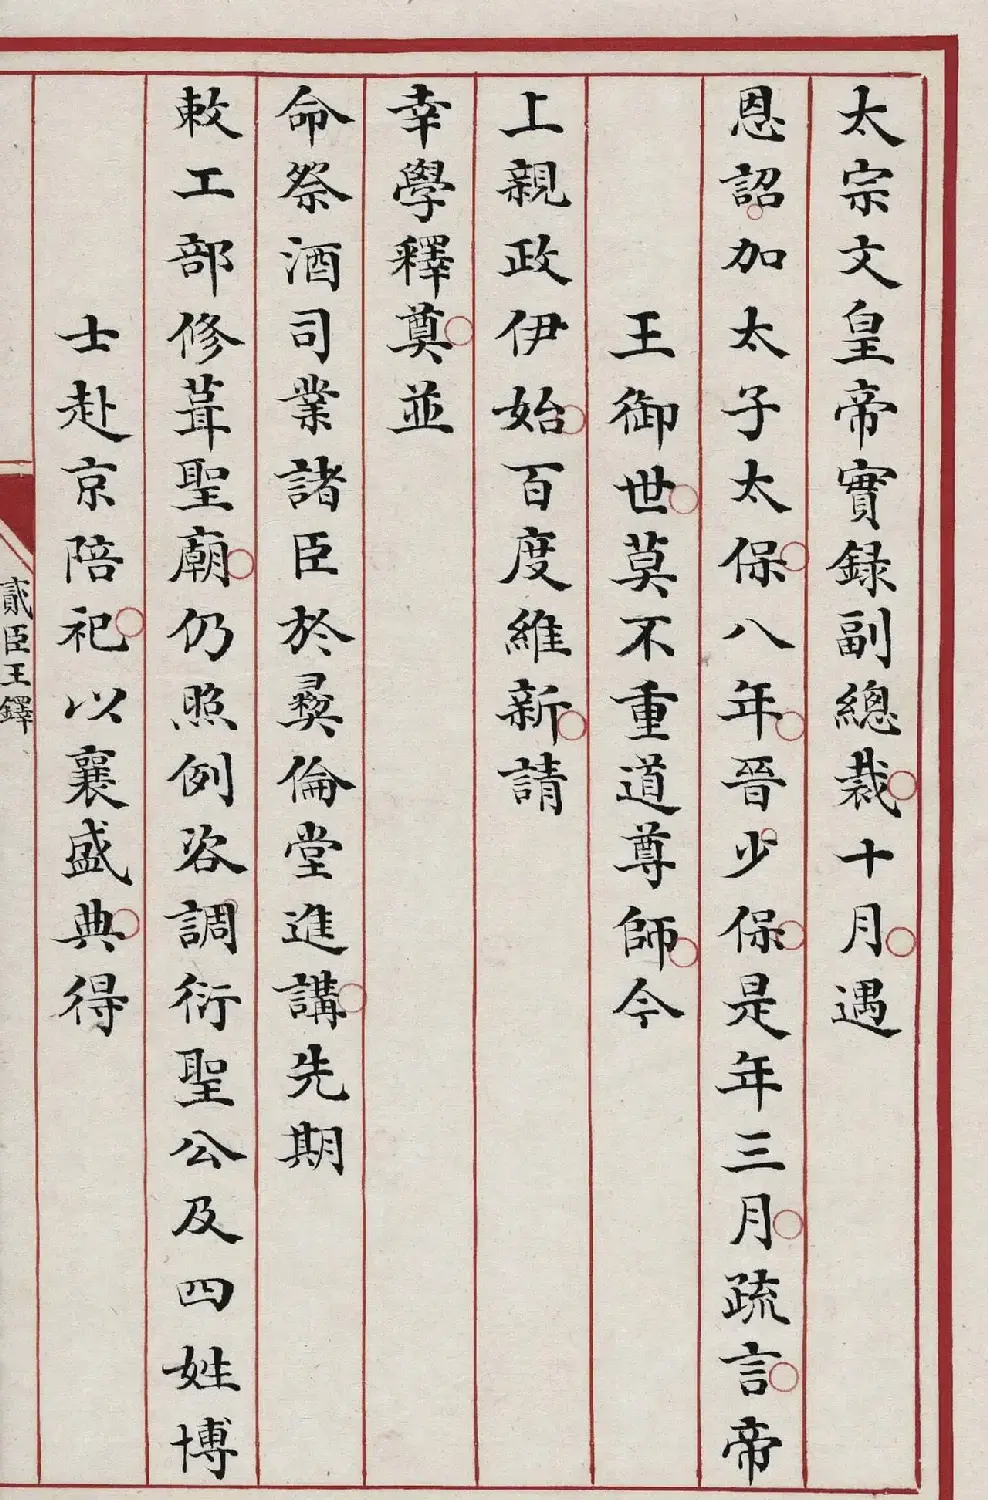 太宗文皇帝實錄副總裁十月遇
恩詔加太子太保八年晉少保是年三月疏言帝
王御世莫不重道尊師今
上親政伊始百度維新請
幸學釋奠並
命祭酒司業諸臣於彝倫堂進講先期
敕工部修葺聖廟仍照例咨調衍聖公及四姓博
士赴京陪祀以襄盛典得
貳臣王鐸